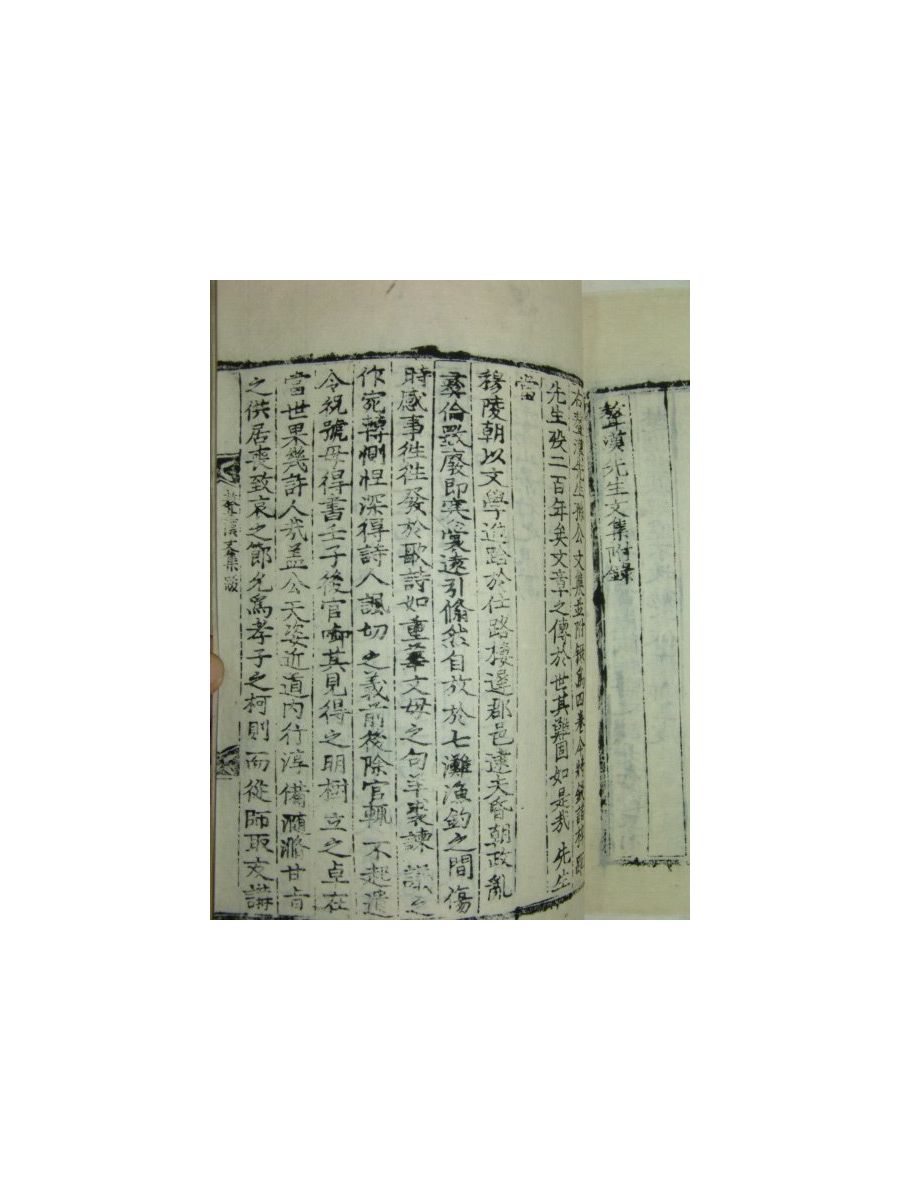 聱漢先生文集附錄
右聱漢先生孫公文集並附錄爲四卷今將
先生歿二百年矣文章之傳於世其難固如是哉 先生
當
穆陵朝以文學進路於仕路棲遑郡邑逮夫昏朝政亂
彝倫斁廢即寒裳遠引翛然自放於七灘漁釣之間傷
時感事徃徃發於歌詩如重華文母之句羊裘諫議之
作宛轉惻悝深得詩人諷切之義前後除官輒不起遣
令祝號毋得書壬子後官啣其見得之明樹立之卓在
當世果幾許人哉盖公天姿近道內行淳備滫瀡甘旨
之供居喪致哀之節允爲孝子之柯則而從師取友講
聱漢文集 跋